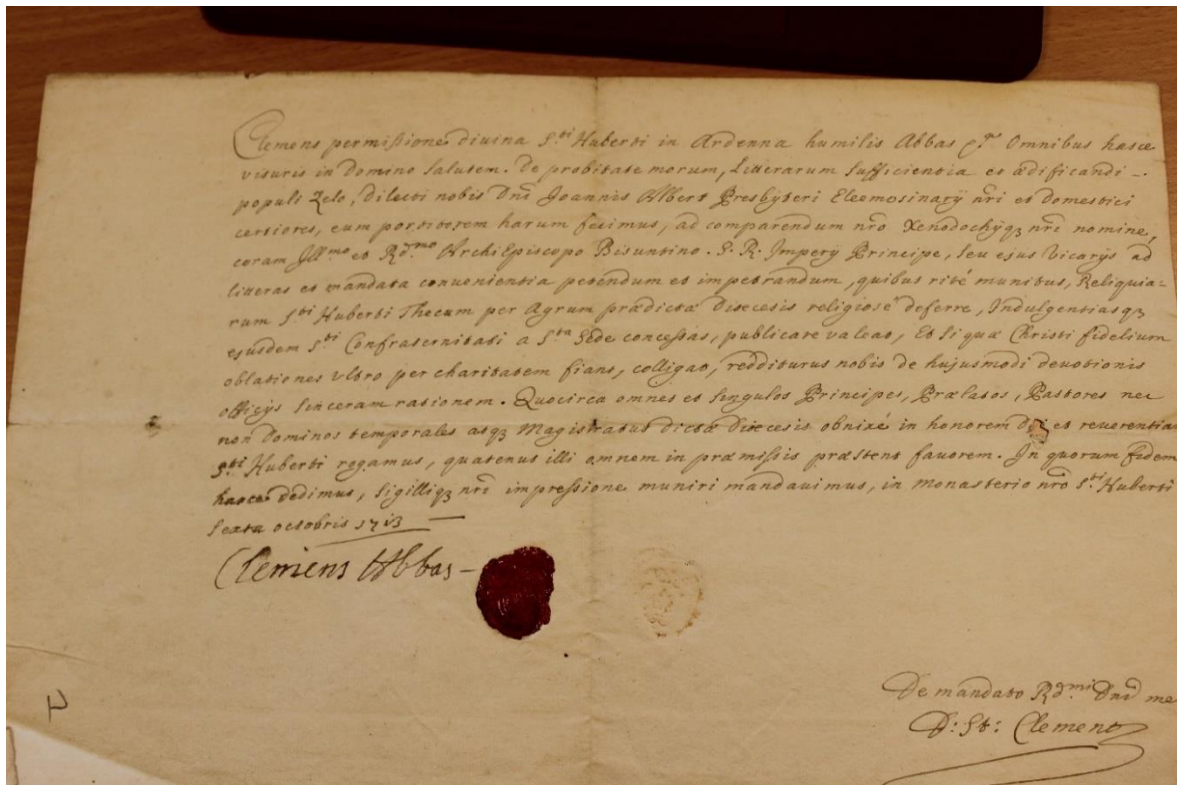 Clemens permissione divina S.ti Huberti in Ardenna humilis Abbas &.a Omnibus hasce
visuris in Domino Salutem. De probitate morum, Litterarum Sufficientia et ædificandi -.
populi Zelo, Dilecti nobis Dni Joannis Albert Presbyteri Eleemosinarÿ nri et Domestici
certiores, eum portitorem harum fecimus, ad comparendum nro Xenodochÿq3 nri nomine,
coram Jll.mo et R.dmo ArchiEpiscopo Bisuntino. S. R. Imperÿ Principe, seu ejus Vicarÿs ad
litteras et mandata convenientia petendum et impetrandum, quibus rité munitus, Reliquia-
rum S.ti Huberti Thecam per Agrum prædictæ Diœcesis religiosé deferre, Indulgentiasq3
ejusdem S.ti Confraternitati a S.ta Sede concessas, publicare valeat, Et si quæ Christi fidelium
oblationes ultro per charitatem fiant, colligat, redditurus nobis de hujusmodi devotionis
officÿs sinceram rationem. Quocirca omnes et singulos Principes, Prælatos, Pastores nec
non Dominos temporales atq3 Magistratus dictæ Diœcesis obnixé in honorem et reverentia
S.ti Huberti rogamus, quatenus illi omnem in præmissis præstent favorem. In quorum fidem
hasce dedimus, sigilliq3 nri impressione muniri mandavimus, in Monasterio nro S.ti Huberti
sexta octobris 1713 —
Clemens Abbas -
De mandato R.dmi Dni mei
D: St: Clement